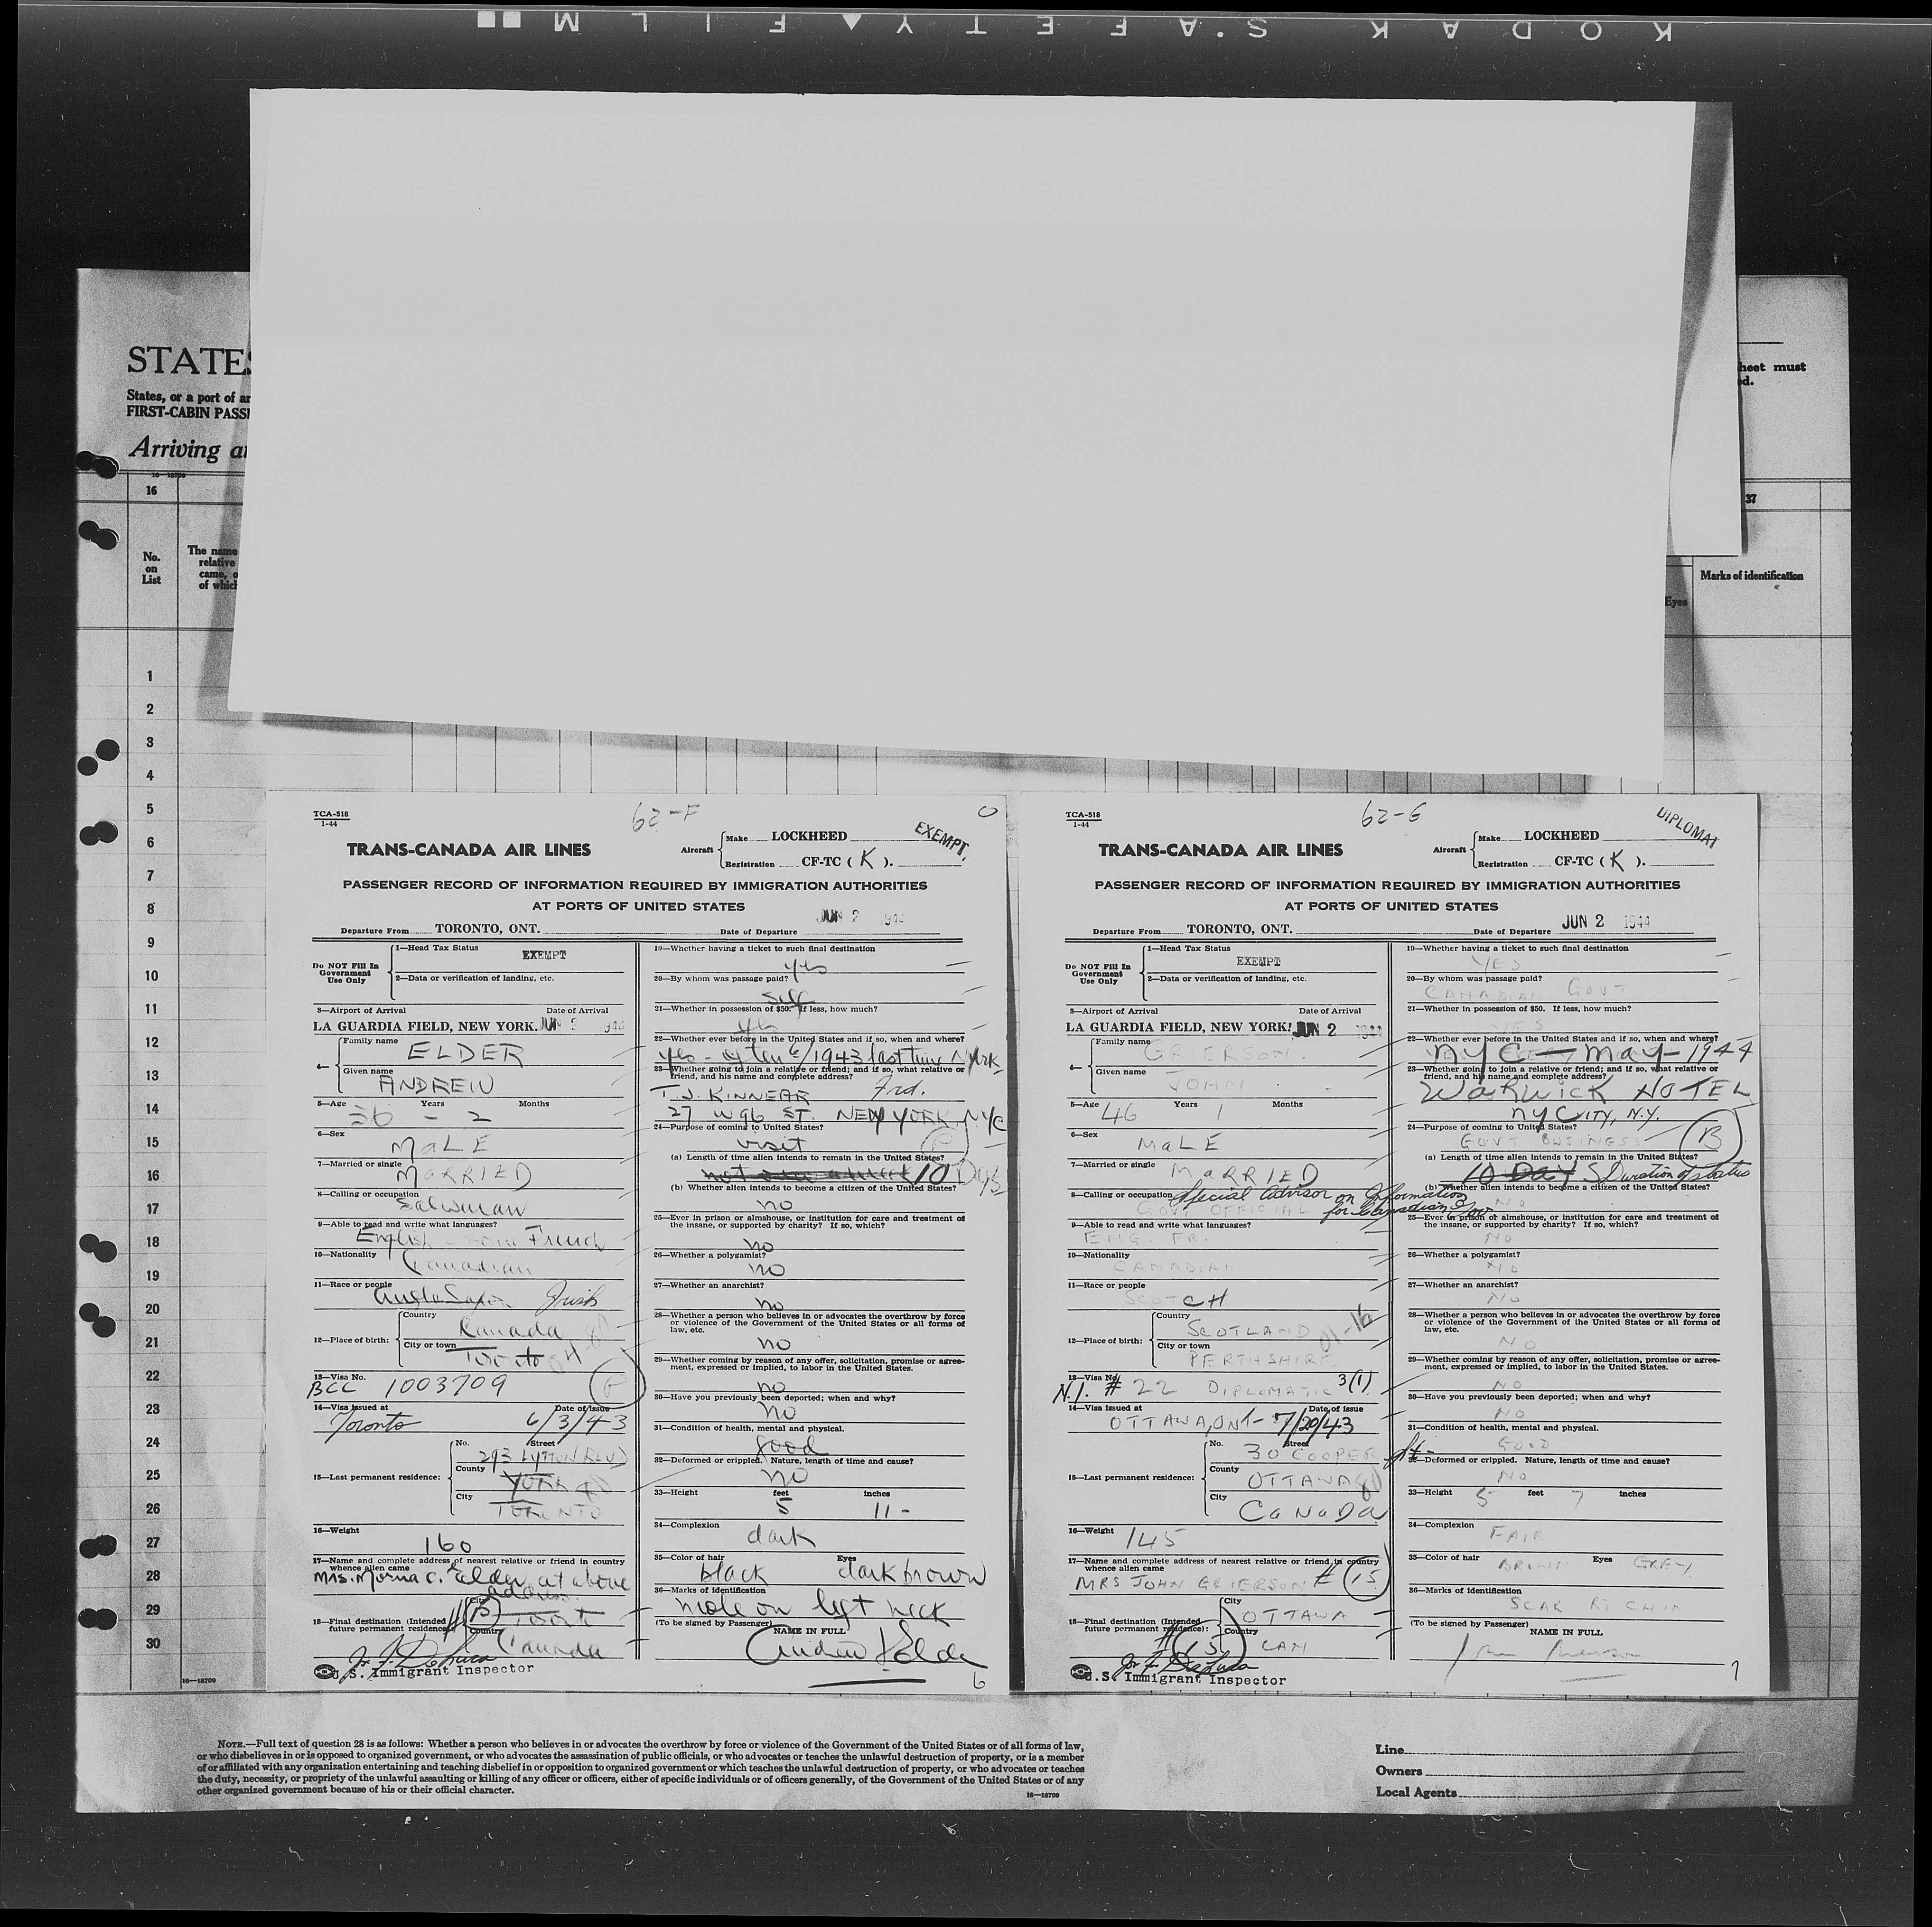 KODAK SAFETY FILM
STATES
States, or a port of
FIRST-CABIN
Arriving
heet must
16-18709
16
37
No.
on
List
The name
relative
came, o
of which
Marks of identification
Eyes
1
2
3
4
5
6
7
8
9
10
11
12
13
14
15
16
17
18
19
20
21
22
23
24
25
26
27
28
29
30
16-18709
TCA-518
1-44
62-F
TRANS-CANADA AIR LINES
Aircraft Make LOCKHEED
Registration CF-TC ( K ).
EXEMPT.
PASSENGER RECORD OF INFORMATION REQUIRED BY IMMIGRATION AUTHORITIES
AT PORTS OF UNITED STATES
JUN 2 1944
Departure From TORONTO, ONT. Date of Departure
Do NOT Fill In Government Use Only
1-Head Tax Status
EXEMPT
2-Data or verification of landing, etc.
3-Airport of Arrival Date of Arrival
LA GUARDIA FIELD, NEW YORK. JUN 2
4- Family name
ELDER
Given name
ANDREW
5-Age Years Months
36 - 2
6-Sex
MALE
7-Married or single
MARRIED
8-Calling or occupation
Salesman
9-Able to read and write what languages?
English - some French
10-Nationality
Canadian
11-Race or people
Anglo Saxon Irish
12-Place of birth: Country
Canada
City or town
Toronto
13-Visa No.
BCC 1003709
14-Visa issued at Date of Issue
Toronto 6/3/43
15-Last permanent residence: No. Street
293 LYTTON BLVD
County
YORK
City
TORONTO
16-Weight
160
17-Name and complete address of nearest relative or friend in country
whence alien came
Mrs. Morna C. Elder at above
address
18-Final destination (Intended
future permanent residence): City
Country
Canada
U.S. Immigrant Inspector
19-Whether having a ticket to such final destination
yes
20-By whom was passage paid?
Self
21-Whether in possession of $50. If less, how much?
yes
22-Whether ever before in the United States and if so, when and where?
yes - often 6/1943 last time N York
23-Whether going to join a relative or friend; and if so, what relative or
friend, and his name and complete address?
Frd.
T. J. KINNEAR
27 W 96 ST. NEW YORK, NYC
24-Purpose of coming to United States?
visit
(a) Length of time alien intends to remain in the United States?
10 Days
(b) Whether alien intends to become a citizen of the United States?
no
25-Ever in prison or almshouse, or institution for care and treatment of
the insane, or supported by charity? If so, which?
no
26-Whether a polygamist?
no
27-Whether an anarchist?
no
28-Whether a person who believes in or advocates the overthrow by force
or violence of the Government of the United States or all forms of
law, etc.
no
29-Whether coming by reason of any offer, solicitation, promise or agree-
ment, expressed or implied, to labor in the United States.
no
30-Have you previously been deported; when and why?
no
31-Condition of health, mental and physical.
good
32-Deformed or crippled. Nature, length of time and cause?
no
33-Height feet inches
5 11 -
34-Complexion
dark
35-Color of hair Eyes
black dark brown
36-Marks of identification
mole on left neck
(To be signed by Passenger)
NAME IN FULL
Andrew Elder
6
TCA-518
1-44
62-G
TRANS-CANADA AIR LINES
Aircraft Make LOCKHEED
Registration CF-TC ( K ).
DIPLOMAT
PASSENGER RECORD OF INFORMATION REQUIRED BY IMMIGRATION AUTHORITIES
AT PORTS OF UNITED STATES
JUN 2 1944
Departure From TORONTO, ONT. Date of Departure
Do NOT Fill In Government Use Only
1-Head Tax Status
EXEMPT
2-Data or verification of landing, etc.
3-Airport of Arrival Date of Arrival
LA GUARDIA FIELD, NEW YORK. JUN 2 1944
4- Family name
GRIERSON
Given name
JOHN
5-Age Years Months
46 1
6-Sex
MALE
7-Married or single
MARRIED
8-Calling or occupation
Special Advisor on Information
for Canadian Gov
GOVT OFFICIAL
9-Able to read and write what languages?
ENG. FR.
10-Nationality
CANADIAN
11-Race or people
SCOTCH
12-Place of birth: Country
SCOTLAND
City or town
PERTHSHIRE
13-Visa No.
N.I. # 22 DIPLOMATIC 3(1)
14-Visa issued at Date of issue
OTTAWA, ONT- 7/20/43
15-Last permanent residence: No. Street
30 COOPER
County
OTTAWA
City
CANADA
16-Weight
145
17-Name and complete address of nearest relative or friend in country
whence alien came
MRS JOHN GRIERSON # 15
18-Final destination (Intended
future permanent residence): City
OTTAWA
Country
# 15 CAN
U.S. Immigrant Inspector
19-Whether having a ticket to such final destination
YES
20-By whom was passage paid?
CANADIAN GOVT
21-Whether in possession of $50. If less, how much?
YES
22-Whether ever before in the United States and if so, when and where?
NYC - May - 1944
23-Whether going to join a relative or friend; and if so, what relative or
friend, and his name and complete address?
WARWICK HOTEL
NY CITY, N.Y.
24-Purpose of coming to United States?
GOVT BUSINESS B
(a) Length of time alien intends to remain in the United States?
10 DAYS Duration of status
(b) Whether alien intends to become a citizen of the United States?
NO
25-Ever in prison or almshouse, or institution for care and treatment of
the insane, or supported by charity? If so, which?
NO
26-Whether a polygamist?
NO
27-Whether an anarchist?
NO
28-Whether a person who believes in or advocates the overthrow by force
or violence of the Government of the United States or all forms of
law, etc.
NO
29-Whether coming by reason of any offer, solicitation, promise or agree-
ment, expressed or implied, to labor in the United States.
NO
30-Have you previously been deported; when and why?
NO
31-Condition of health, mental and physical.
GOOD
32-Deformed or crippled. Nature, length of time and cause?
NO
33-Height 5 feet 7 inches
34-Complexion
FAIR
35-Color of hair BROWN Eyes GREY
36-Marks of identification
SCAR RT CHIN
(To be signed by Passenger)
NAME IN FULL
John Grierson
7
NOTE.—Full text of question 28 is as follows: Whether a person who believes in or advocates the overthrow by force or violence of the Government of the United States or of all forms of law,
or who disbelieves in or is opposed to organized government, or who advocates the assassination of public officials, or who advocates or teaches the unlawful destruction of property, or is a member
of or affiliated with any organization entertaining and teaching disbelief in or opposition to organized government or which teaches the unlawful destruction of property, or who advocates or teaches
the duty, necessity, or propriety of the unlawful assaulting or killing of any officer or officers, either of specific individuals or of officers generally, of the Government of the United States or of any
other organized government because of his or their official character.
16-18709
Line
Owners
Local Agents